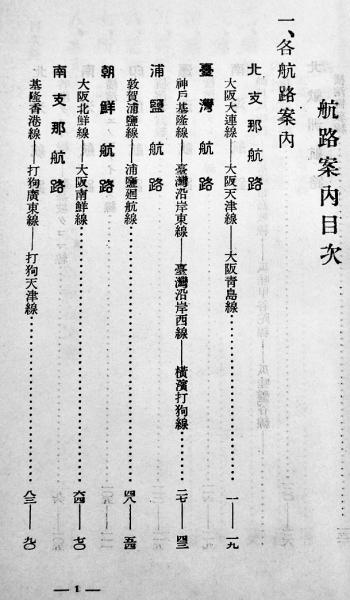 航路案內目次
一、各航路案內
北支那航路
大阪大連線——大阪天津線——大阪靑島線……一——一九
臺灣航路
神戶基隆線——臺灣沿岸東線——臺灣沿岸西線——橫濱打狗線……二七——四三
浦鹽航路
敦賀浦鹽線——浦鹽廻航線……四八——五四
朝鮮航路
大阪北鮮線——大阪南鮮線……六四——七〇
南支那航路
基隆香港線——打狗廣東線——打狗天津線……八三——九〇
— 1 —